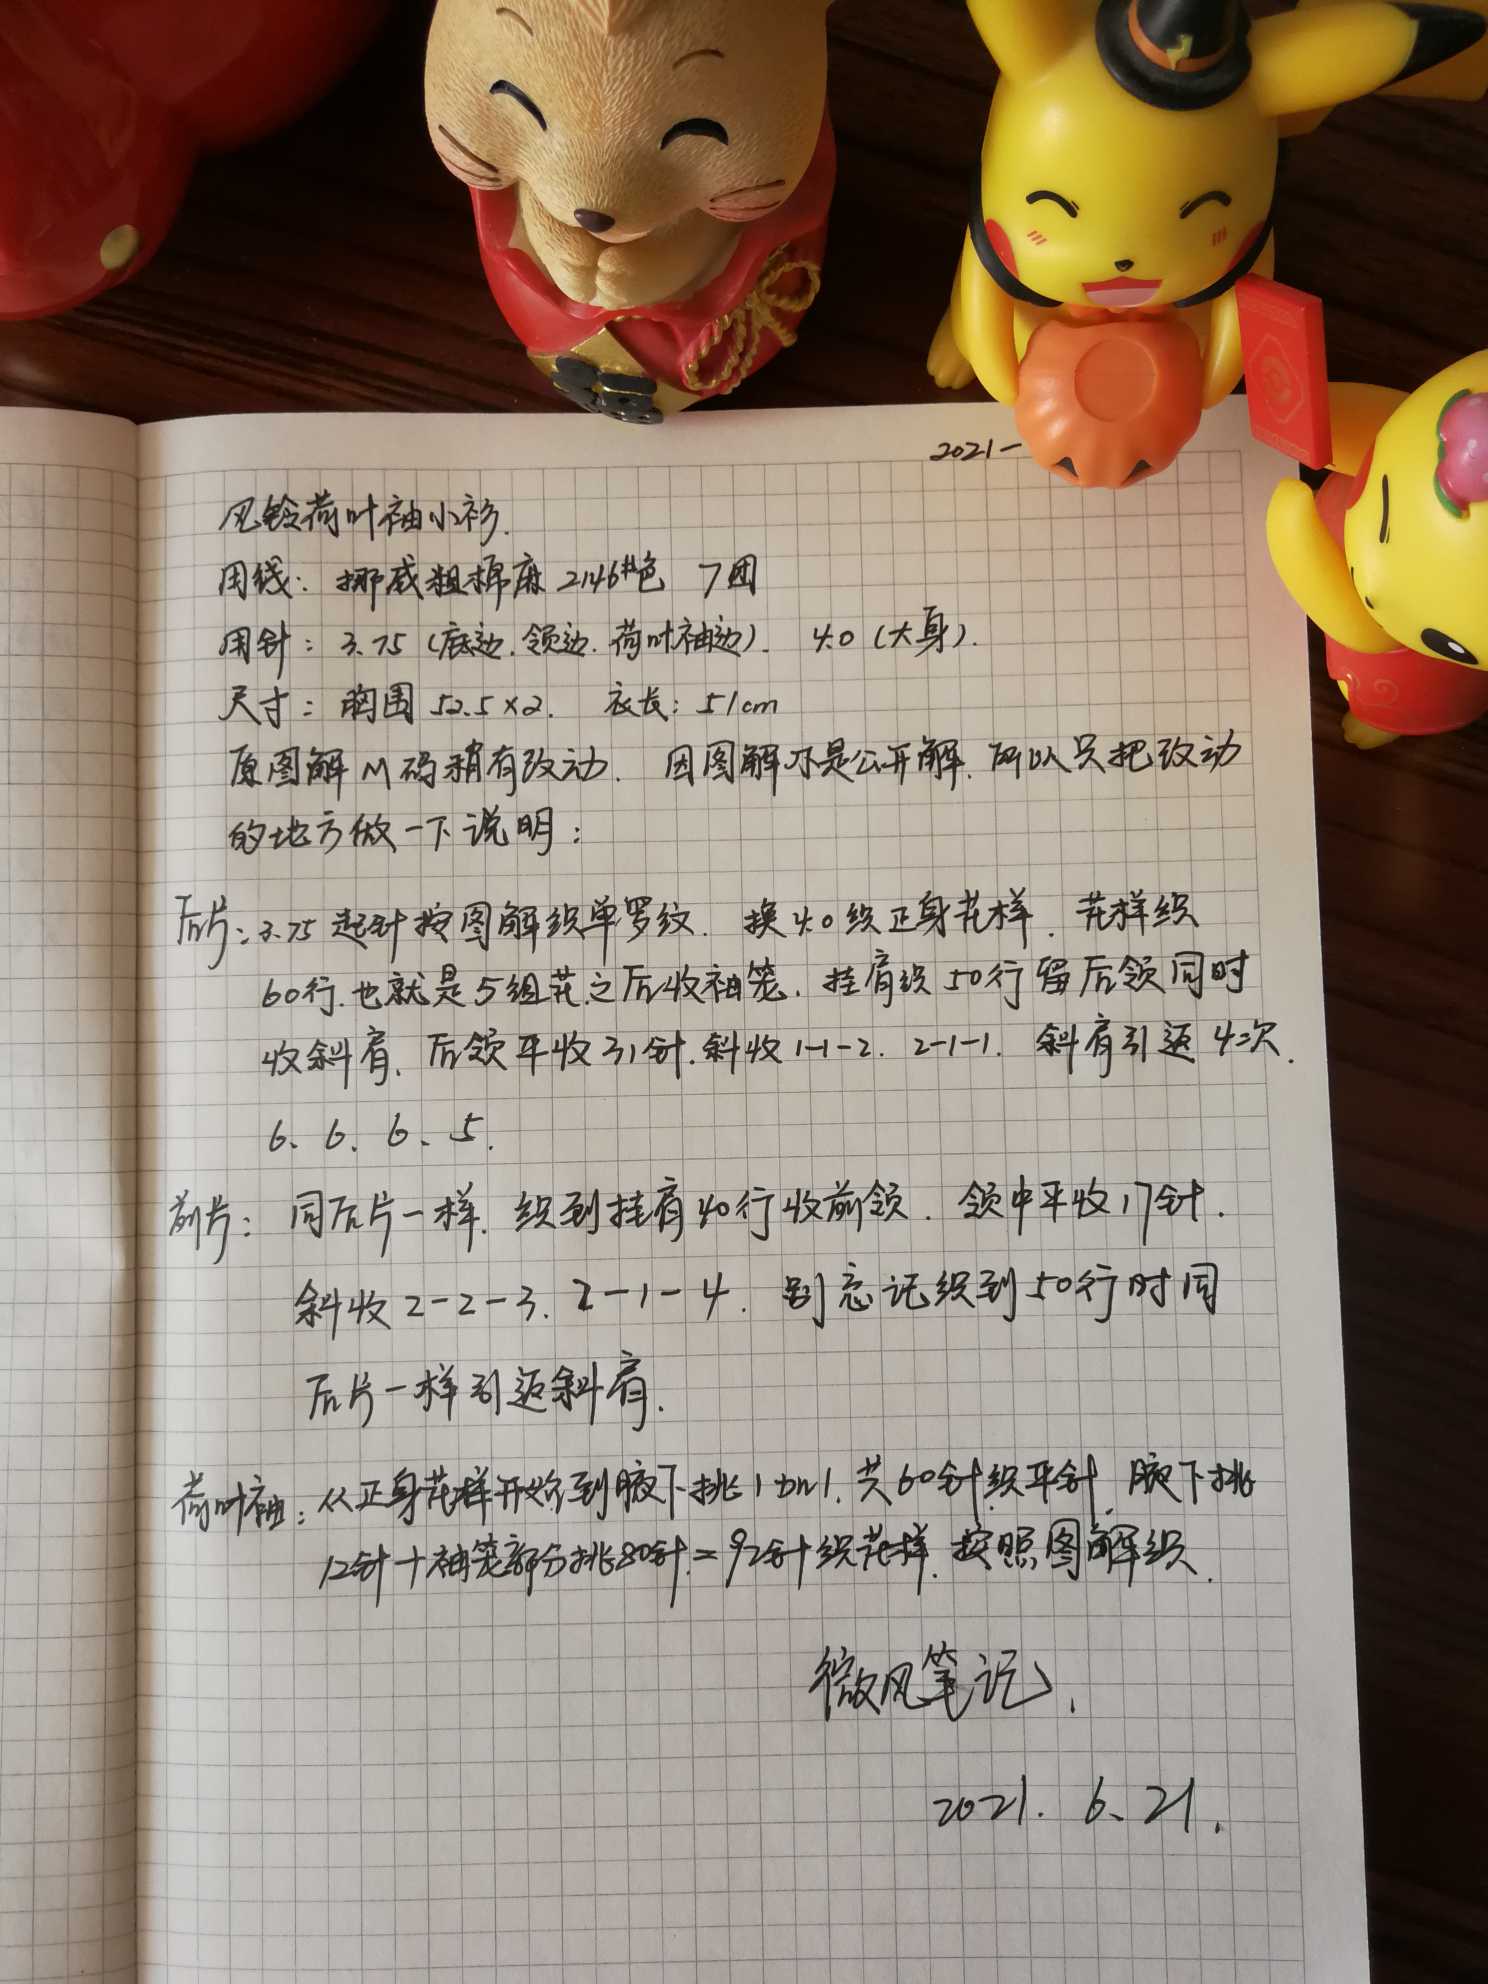 2021-
风铃荷叶袖小衫.
用线: 挪威粗棉麻 2146#色 7团
用针: 3.75 (底边.领边.荷叶袖边). 4.0 (大身).
尺寸: 胸围 52.5×2. 衣长: 51cm
原图解M码稍有改动. 因图解不是公开解. 所以只把改动
的地方做一下说明:
后片: 3.75 起针按图解织单罗纹. 换4.0织正身花样. 花样织
60行.也就是5组花之后收袖笼. 挂肩织50行留后领同时
收斜肩. 后领平收31针.斜收1-1-2. 2-1-1. 斜肩引返4次.
6、6、6、5.
前片: 同后片一样. 织到挂肩40行收前领. 领中平收17针.
斜收2-2-3. 2-1-4. 别忘记织到50行时同
后片一样引返斜肩.
荷叶袖: 从正身花样开始到腋下挑1加1.共60针织平针. 腋下挑
12针+袖笼部分挑80针.=92针织花样. 按照图解织.
微风笔记.
2021. 6. 21.